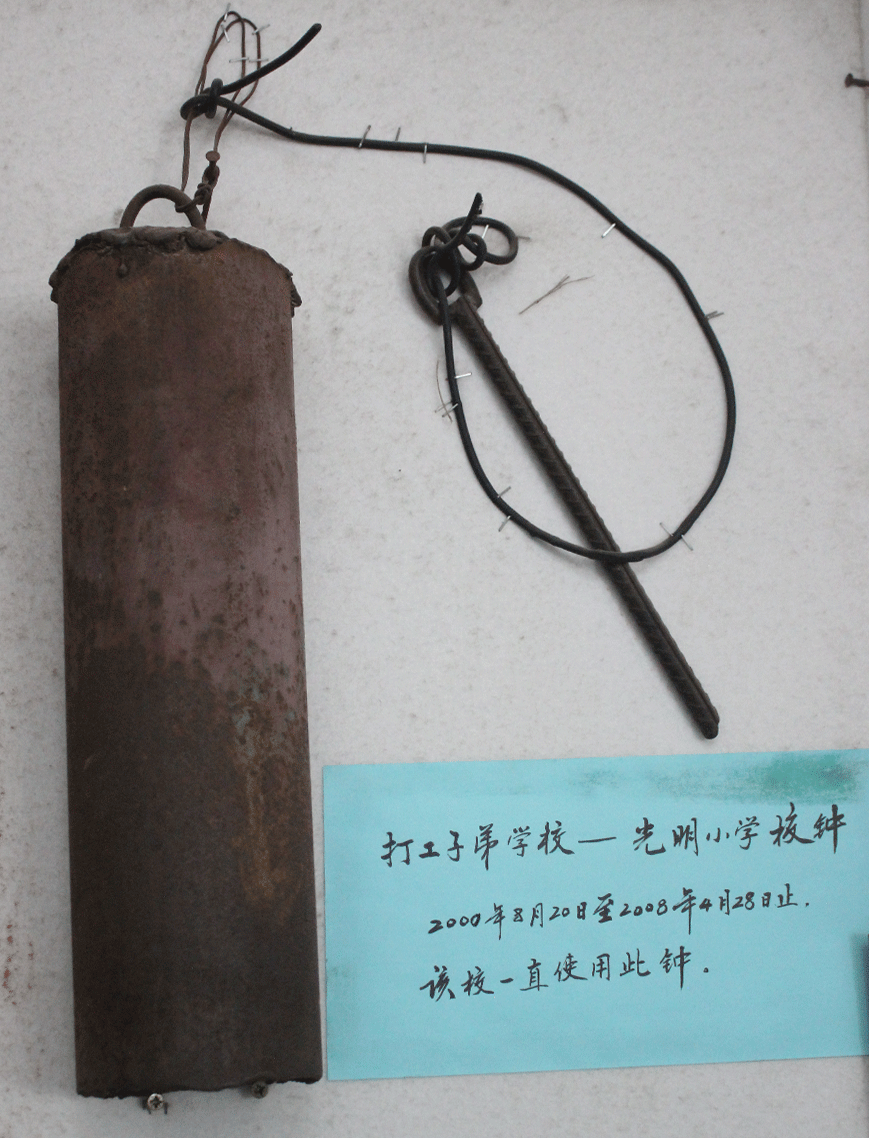 打工子弟学校—光明小学校钟
2000年8月20日至2008年4月28日止.
该校一直使用此钟。